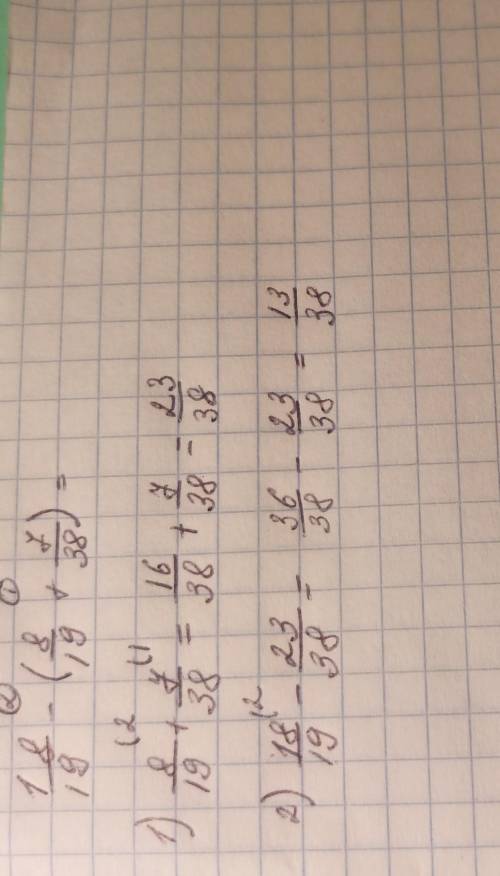 ② ①
18/19 - (8/19 + 7/38) =
1) 8/19 (2 + 7/38 (1 = 16/38 + 7/38 = 23/38
2) 18/19 (2 - 23/38 = 36/38 - 23/38 = 13/38